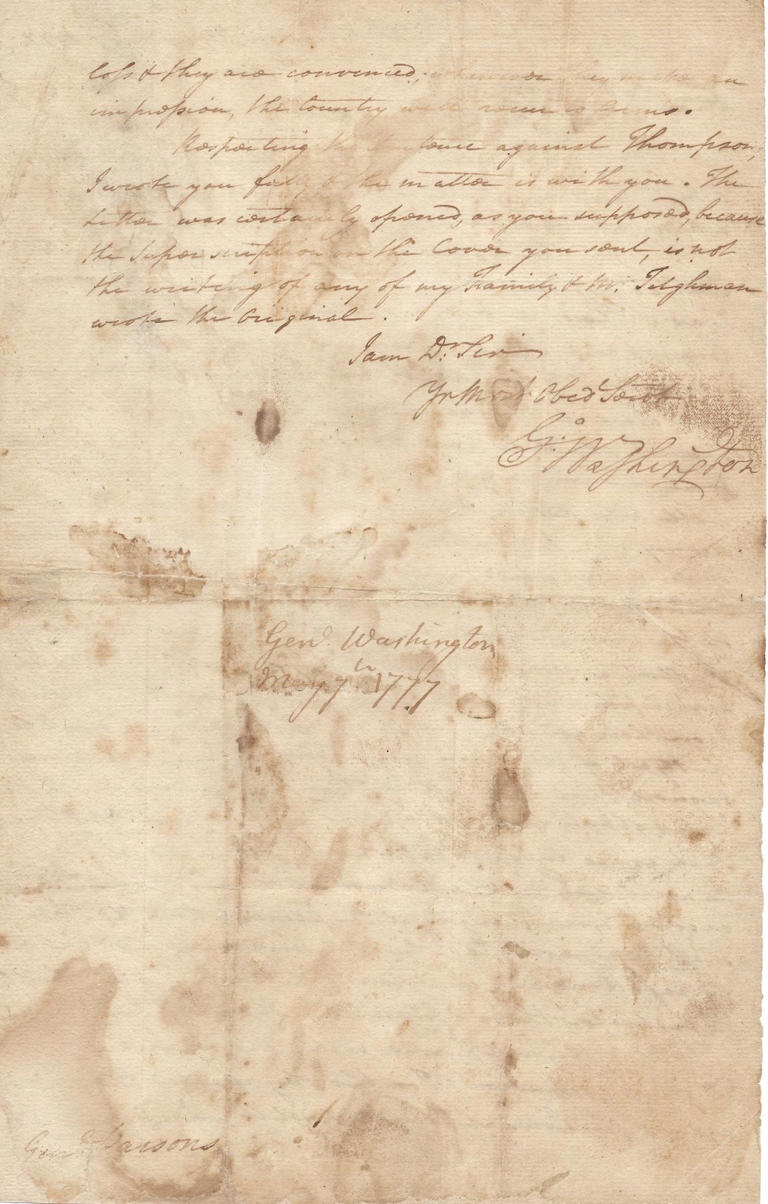 loss & they are convinced; whenever they make an
impression, the Country will
Respecting the Sentence against Thompson,
I wrote you fully & the matter is with you. The
Letter was certainly opened, as you supposed, because
the Superscription on the Cover you sent, is not
the writing of any of my Family & Mr. Tilghman
wrote the Original.
I am Dr. Sir
Yr Most Obed Servt
Go: Washington
Genl. Washington
May 7th 1777
Genl. Parsons